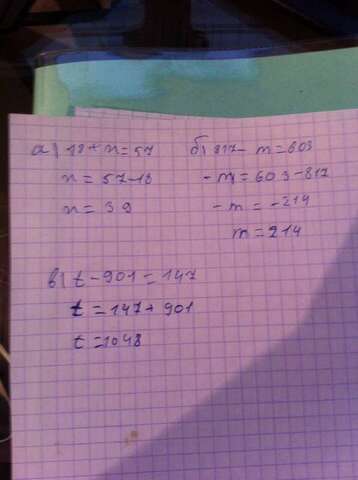 а) 18 + n = 57
n = 57 - 18
n = 39
б) 817 - m = 603
- m = 603 - 817
- m = -214
m = 214
в) t - 901 = 147
t = 147 + 901
t = 1048